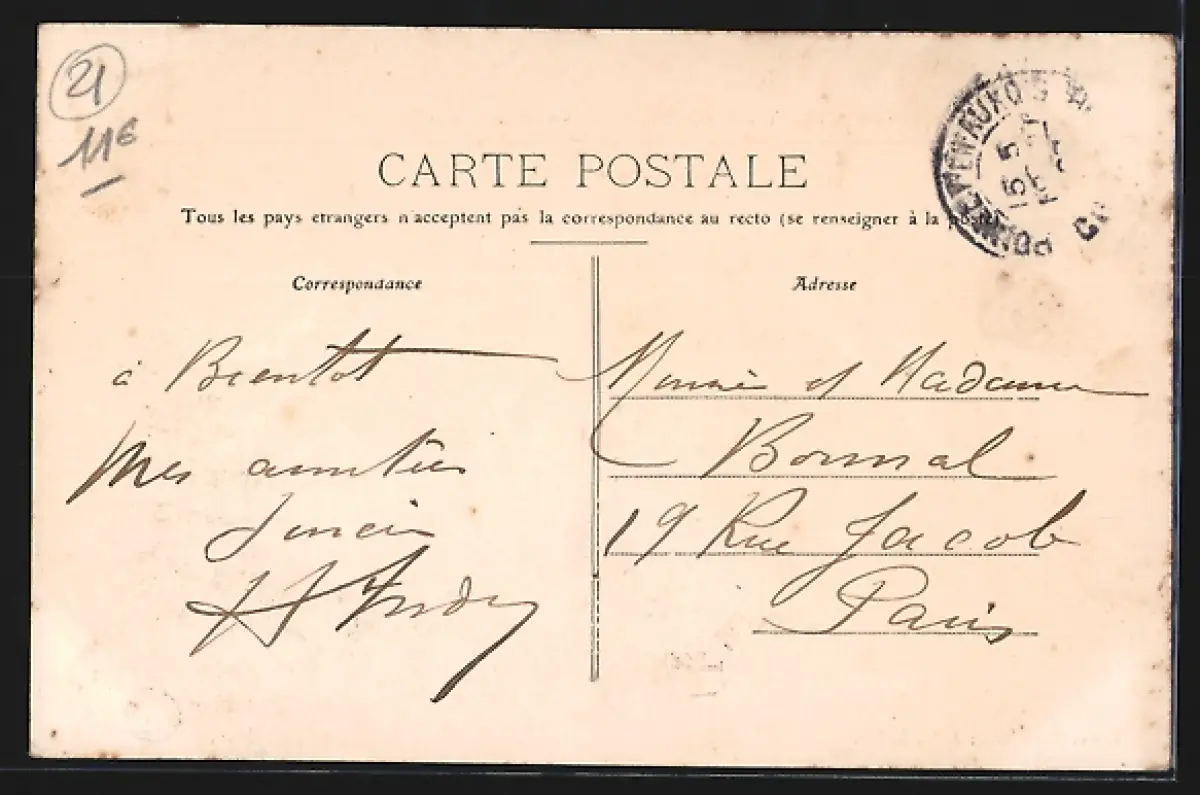 21
11€
CARTE POSTALE
Tous les pays etrangers n'acceptent pas la correspondance au recto (se renseigner à la poste)
Correspondance
à Bientôt
Mes amitiés
Adresse
Monsie et Madame
Bonnal
19 Rue Jacob
Paris
POUILLY-EN-AUXOIS
15 5